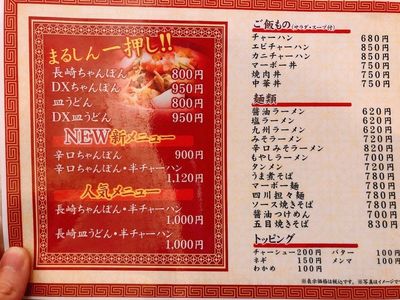 まるしん一押し!!
長崎ちゃんぽん 800円
DXちゃんぽん 950円
皿うどん 800円
DX皿うどん 950円
NEW新メニュー
辛口ちゃんぽん 900円
辛口ちゃんぽん・半チャーハン
1,120円
人気メニュー
長崎ちゃんぽん・半チャーハン
1,000円
長崎皿うどん・半チャーハン
1,000円
ご飯もの(サラダ・スープ付)
チャーハン 680円
エビチャーハン 850円
カニチャーハン 850円
マーボー丼 850円
焼肉丼 850円
中華丼 850円
麺類
醤油ラーメン 620円
塩ラーメン 620円
九州ラーメン 620円
みそラーメン 620円
辛口みそラーメン 680円
もやしラーメン 700円
タンメン 700円
うま煮そば 780円
マーボー麺 780円
四川担々麺 780円
ソース焼きそば 780円
醤油つけめん 700円
五目焼きそば 830円
トッピング
チャーシュー 200円 バター 100円
ネギ 150円 メンマ 100円
わかめ 100円
※表示価格は税込です。 ※写真はイメージで